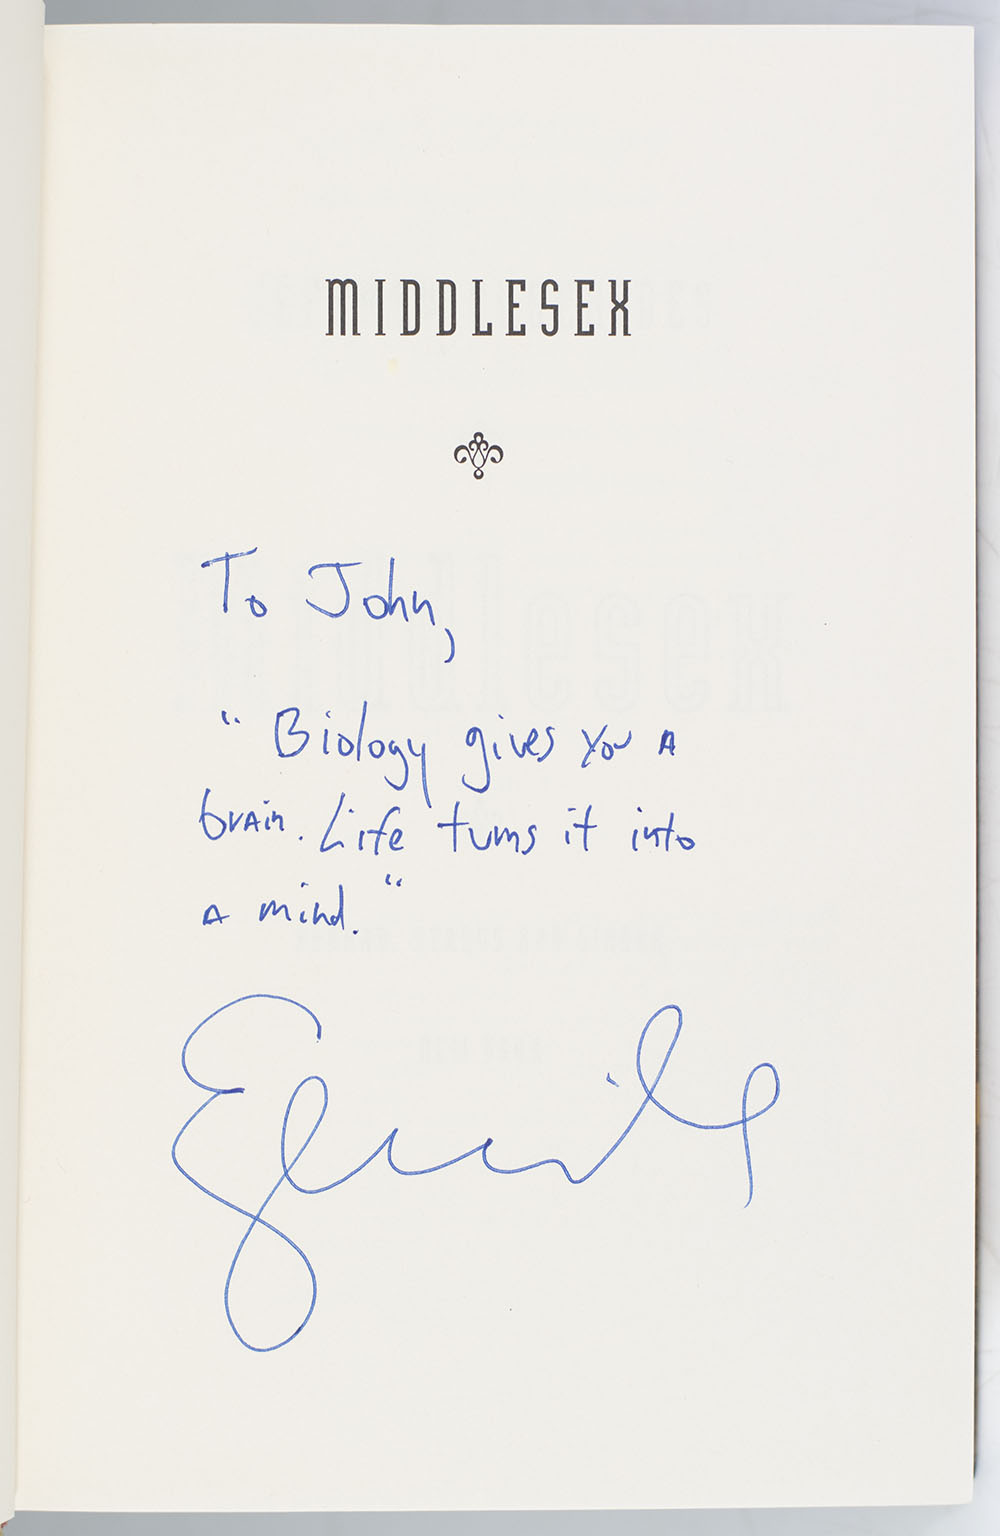 MIDDLESEX
To John,
"Biology gives you a
brain. Life turns it into
a mind."